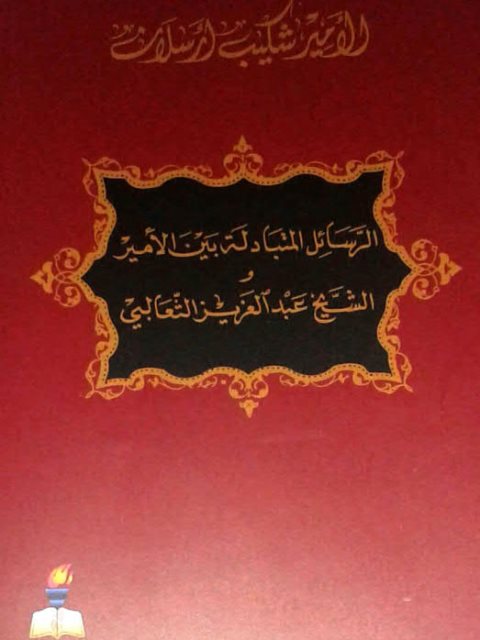 الأمير شكيب أرسلان
الرَّسَائِل المتبَادلَة بَيْنَ الأمير
و
الشَّيخ عَبْد العَزيز الثَّعَالبي